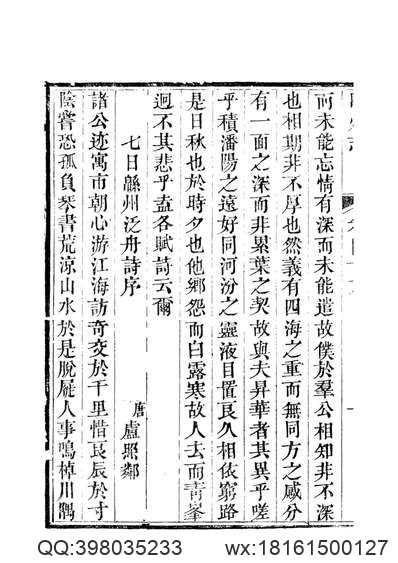 而未能忘情有深而未能遣故僕於羣公相知非不深
也相期非不厚也然義有四海之重而無同方之感分
有一面之深而非累葉之契故與夫昇華者其異乎嗟
乎積潘陽之遠好同河汾之靈液目置良久相依窮路
是日秋也於時夕也他鄉怨而白露寒故人去而靑峯
迥不其悲乎盍各賦詩云爾
七日緜州泛舟詩序
唐 盧照鄰
諸公迹寓市朝心游江海訪奇交於千里惜良辰於寸
陰嘗恐孤負琴書荒涼山水於是脫屣人事鳴棹川隅
QQ:398035233
wx:18161500127